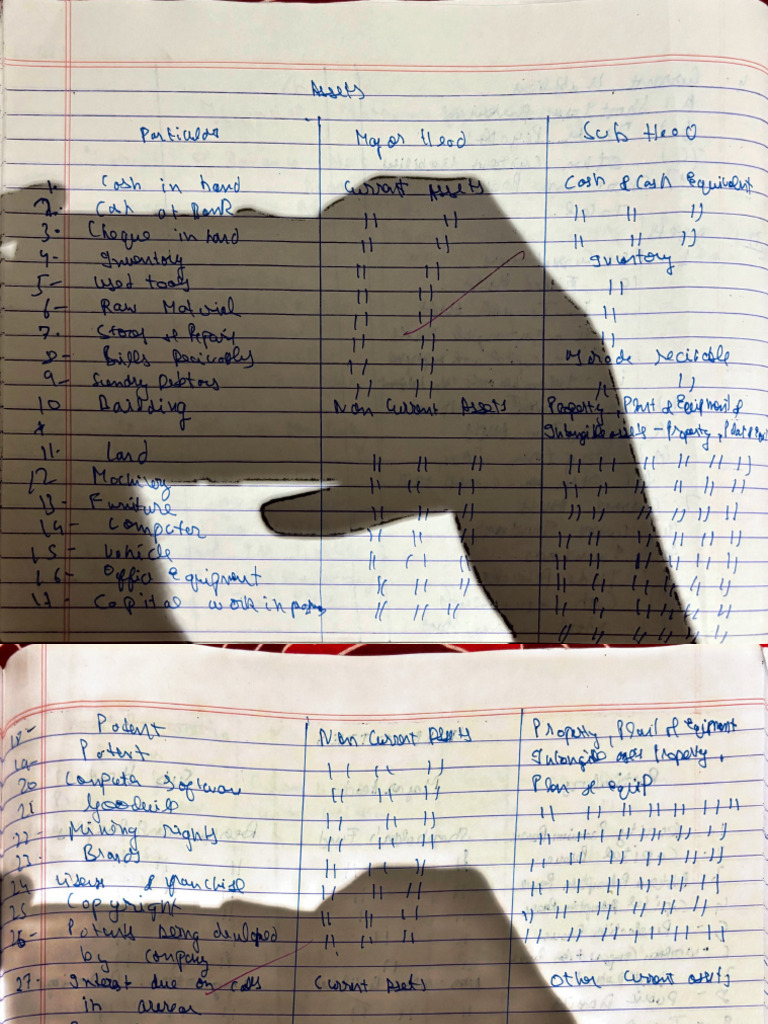 Assets
Particular Major Head Sub Head
1. Cash in hand Current Assets Cash & Cash Equivalent
2. Cash at Bank " " " " "
3. Cheque in hand " " " " "
4- Inventory " " Inventory
5- Used tools " " "
6- Raw Material " " "
7. " " "
8- Bills " "
9- Sundry Debtors " " " "
10 Non Current Assets Property, Plant & Equipment &
Intangible assets - Property,
11. Land " " " " " " " " "
12 Machinery " " " " " " " " "
13- Furniture " " " " " " " " "
14- Computer " " " " " " " " "
15- Vehicle " " " " " " " " "
16- Office Equipment " " " " " " " " "
17- Capital work in " " " " " " " " "
18- Patent Non Current Assets Property, Plant & Equipment
19- Patent " " " Intangible Property,
20 Software " " " Plan & equip
21 Goodwill " " " " " " " " " "
22- Mining rights " " " " " " " " "
23- Brands " " " " " " " " "
24 & franchise " " " " " " " " "
25 Copyright " " " " " " " " "
26- being " " " " " " " " "
by company
27- Interest due on Current Assets Other Current assets
in